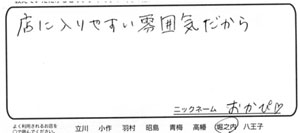 店に入りやすい雰囲気だから
ニックネーム おかぴ♡
よく利用されるお店を
○で囲んでください。 立川 小作 羽村 昭島 青梅 高幡 堀之内 八王子